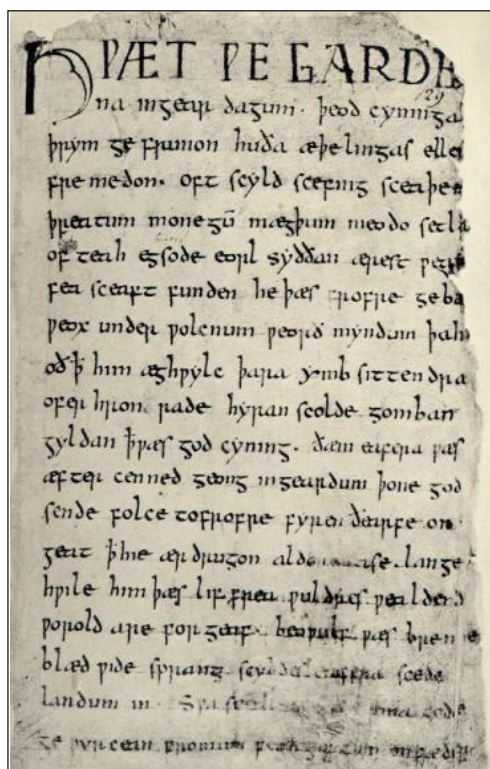 HǷÆT ǷE GARDE
129
na ingear dagum · þeod cyninga
þrym ge frunon huða æþelingas elle
fremedon · oft scyld scefing sceaþe
þreatum monegū mægþum meodo setla
of teah egsode eorl syððan ærest ƿear
fea sceaft funden he þæs frofre geba
ƿeox under ƿolcnum ƿeorð myndum þah
oð ꝥ him æghƿylc þara ymb sittendra
ofer hron rade hyran scolde gomban
gyldan ꝥ ƿæs god cyning · ðæm eafera ƿæs
æfter cenned geong ingeardum þone god
sende folce tofrofre fyren ðearfe on
geat ꝥ hie ær drugon aldor ase lange
hƿile him þæs lif frea ƿuldres ƿealdend
ƿorold are for geaf · beoƿulf ƿæs breme
blæd ƿide sprang scyldes eafera scede
landum in · Sƿa ma gode
ge ƿyrcean fromum feoh giftum